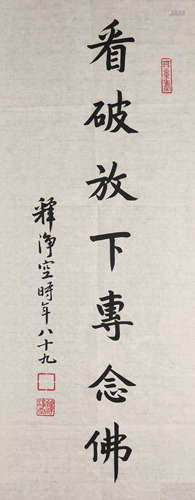 看破放下專念佛
釋淨空時年八十九